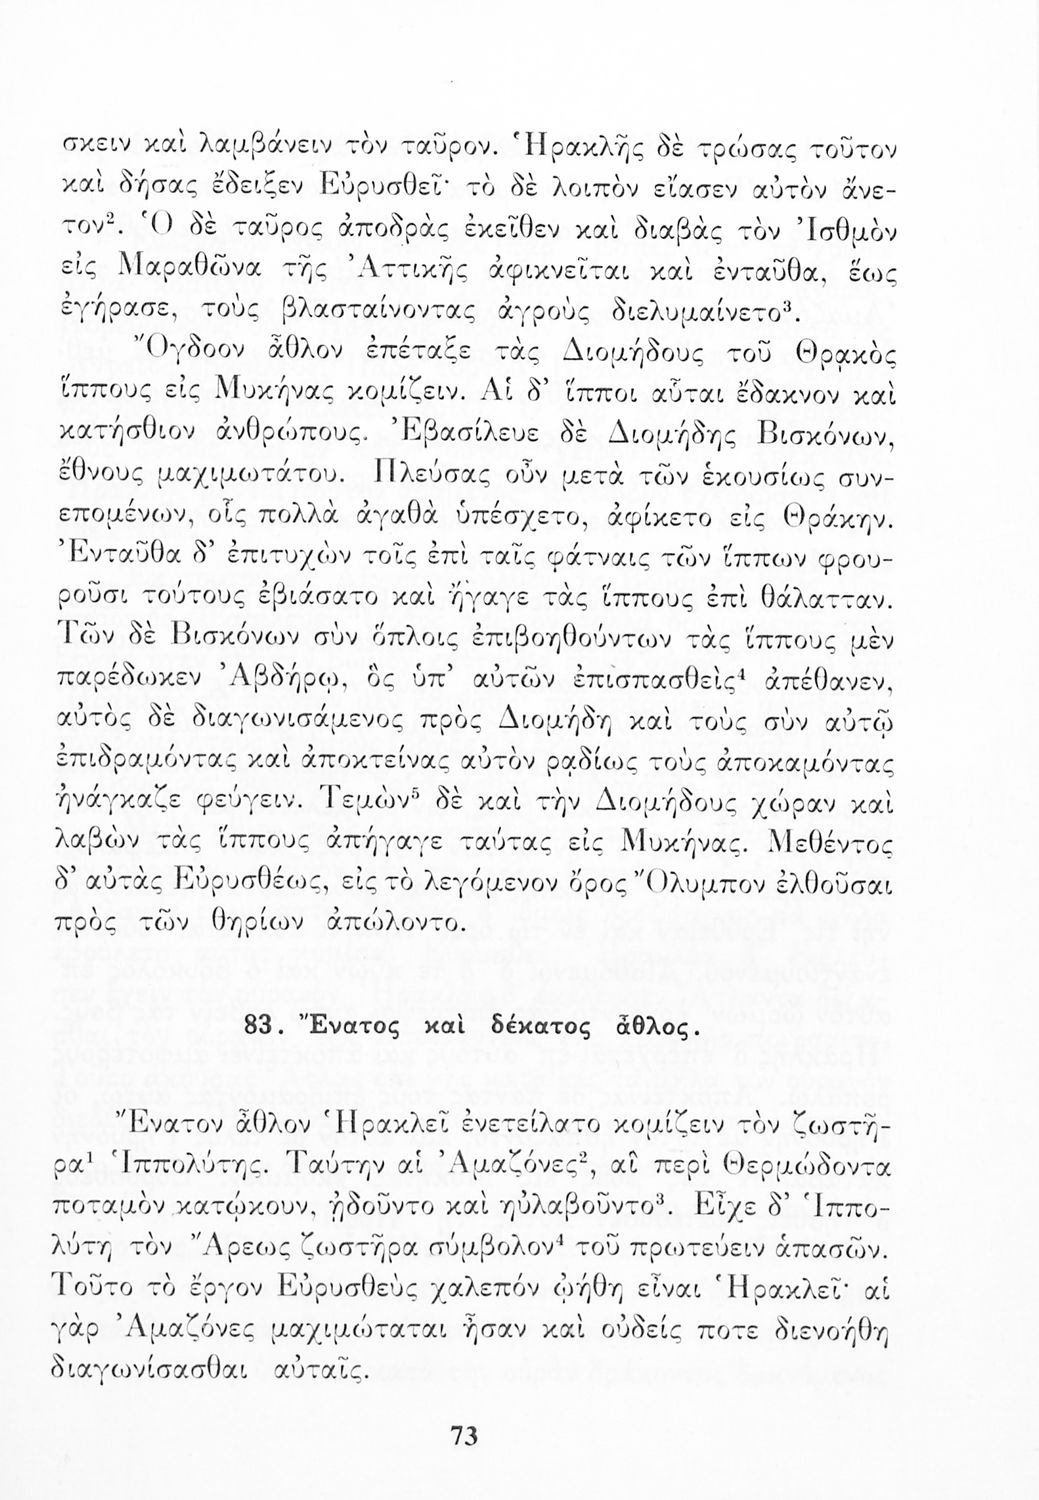 σκειν καὶ λαμβάνειν τὸν ταῦρον. Ἡρακλῆς δὲ τρώσας τοῦτον
καὶ δήσας ἔδειξεν Εὐρυσθεῖ· τὸ δὲ λοιπὸν εἴασεν αὐτὸν ἄνε-
τον². Ὁ δὲ ταῦρος ἀποδρὰς ἐκεῖθεν καὶ διαβὰς τὸν Ἰσθμὸν
εἰς Μαραθῶνα τῆς Ἀττικῆς ἀφικνεῖται καὶ ἐνταῦθα, ἕως
ἐγήρασε, τοὺς βλασταίνοντας ἀγροὺς διελυμαίνετο³.
Ὄγδοον ἆθλον ἐπέταξε τὰς Διομήδους τοῦ Θρᾳκὸς
ἵππους εἰς Μυκήνας κομίζειν. Αἱ δ’ ἵπποι αὗται ἔδακνον καὶ
κατήσθιον ἀνθρώπους. Ἐβασίλευε δὲ Διομήδης Βισκόνων,
ἔθνους μαχιμωτάτου. Πλεύσας οὖν μετὰ τῶν ἑκουσίως συν-
επομένων, οἷς πολλὰ ἀγαθὰ ὑπέσχετο, ἀφίκετο εἰς Θράκην.
Ἐνταῦθα δ’ ἐπιτυχὼν τοῖς ἐπὶ ταῖς φάτναις τῶν ἵππων φρου-
ροῦσι τούτους ἐβιάσατο καὶ ἤγαγε τὰς ἵππους ἐπὶ θάλατταν.
Τῶν δὲ Βισκόνων σὺν ὅπλοις ἐπιβοηθούντων τὰς ἵππους μὲν
παρέδωκεν Ἀβδήρῳ, ὃς ὑπ’ αὐτῶν ἐπισπασθεὶς⁴ ἀπέθανεν,
αὐτὸς δὲ διαγωνισάμενος πρὸς Διομήδη καὶ τοὺς σὺν αὐτῷ
ἐπιδραμόντας καὶ ἀποκτείνας αὐτὸν ρᾳδίως τοὺς ἀποκαμόντας
ἠνάγκαζε φεύγειν. Τεμὼν⁵ δὲ καὶ τὴν Διομήδους χώραν καὶ
λαβὼν τὰς ἵππους ἀπήγαγε ταύτας εἰς Μυκήνας. Μεθέντος
δ’ αὐτὰς Εὐρυσθέως, εἰς τὸ λεγόμενον ὄρος Ὄλυμπον ἐλθοῦσαι
πρὸς τῶν θηρίων ἀπώλοντο.
83. Ἔνατος καὶ δέκατος ἆθλος.
Ἔνατον ἆθλον Ἡρακλεῖ ἐνετείλατο κομίζειν τὸν ζωστῆ-
ρα¹ Ἱππολύτης. Ταύτην αἱ Ἀμαζόνες², αἳ περὶ Θερμώδοντα
ποταμὸν κατῴκουν, ᾐδοῦντο καὶ ηὐλαβοῦντο³. Εἶχε δ’ Ἱππο-
λύτη τὸν Ἄρεως ζωστῆρα σύμβολον⁴ τοῦ πρωτεύειν ἁπασῶν.
Τοῦτο τὸ ἔργον Εὐρυσθεὺς χαλεπόν ᾠήθη εἶναι Ἡρακλεῖ· αἱ
γὰρ Ἀμαζόνες μαχιμώταται ἦσαν καὶ οὐδείς ποτε διενοήθη
διαγωνίσασθαι αὐταῖς.
73